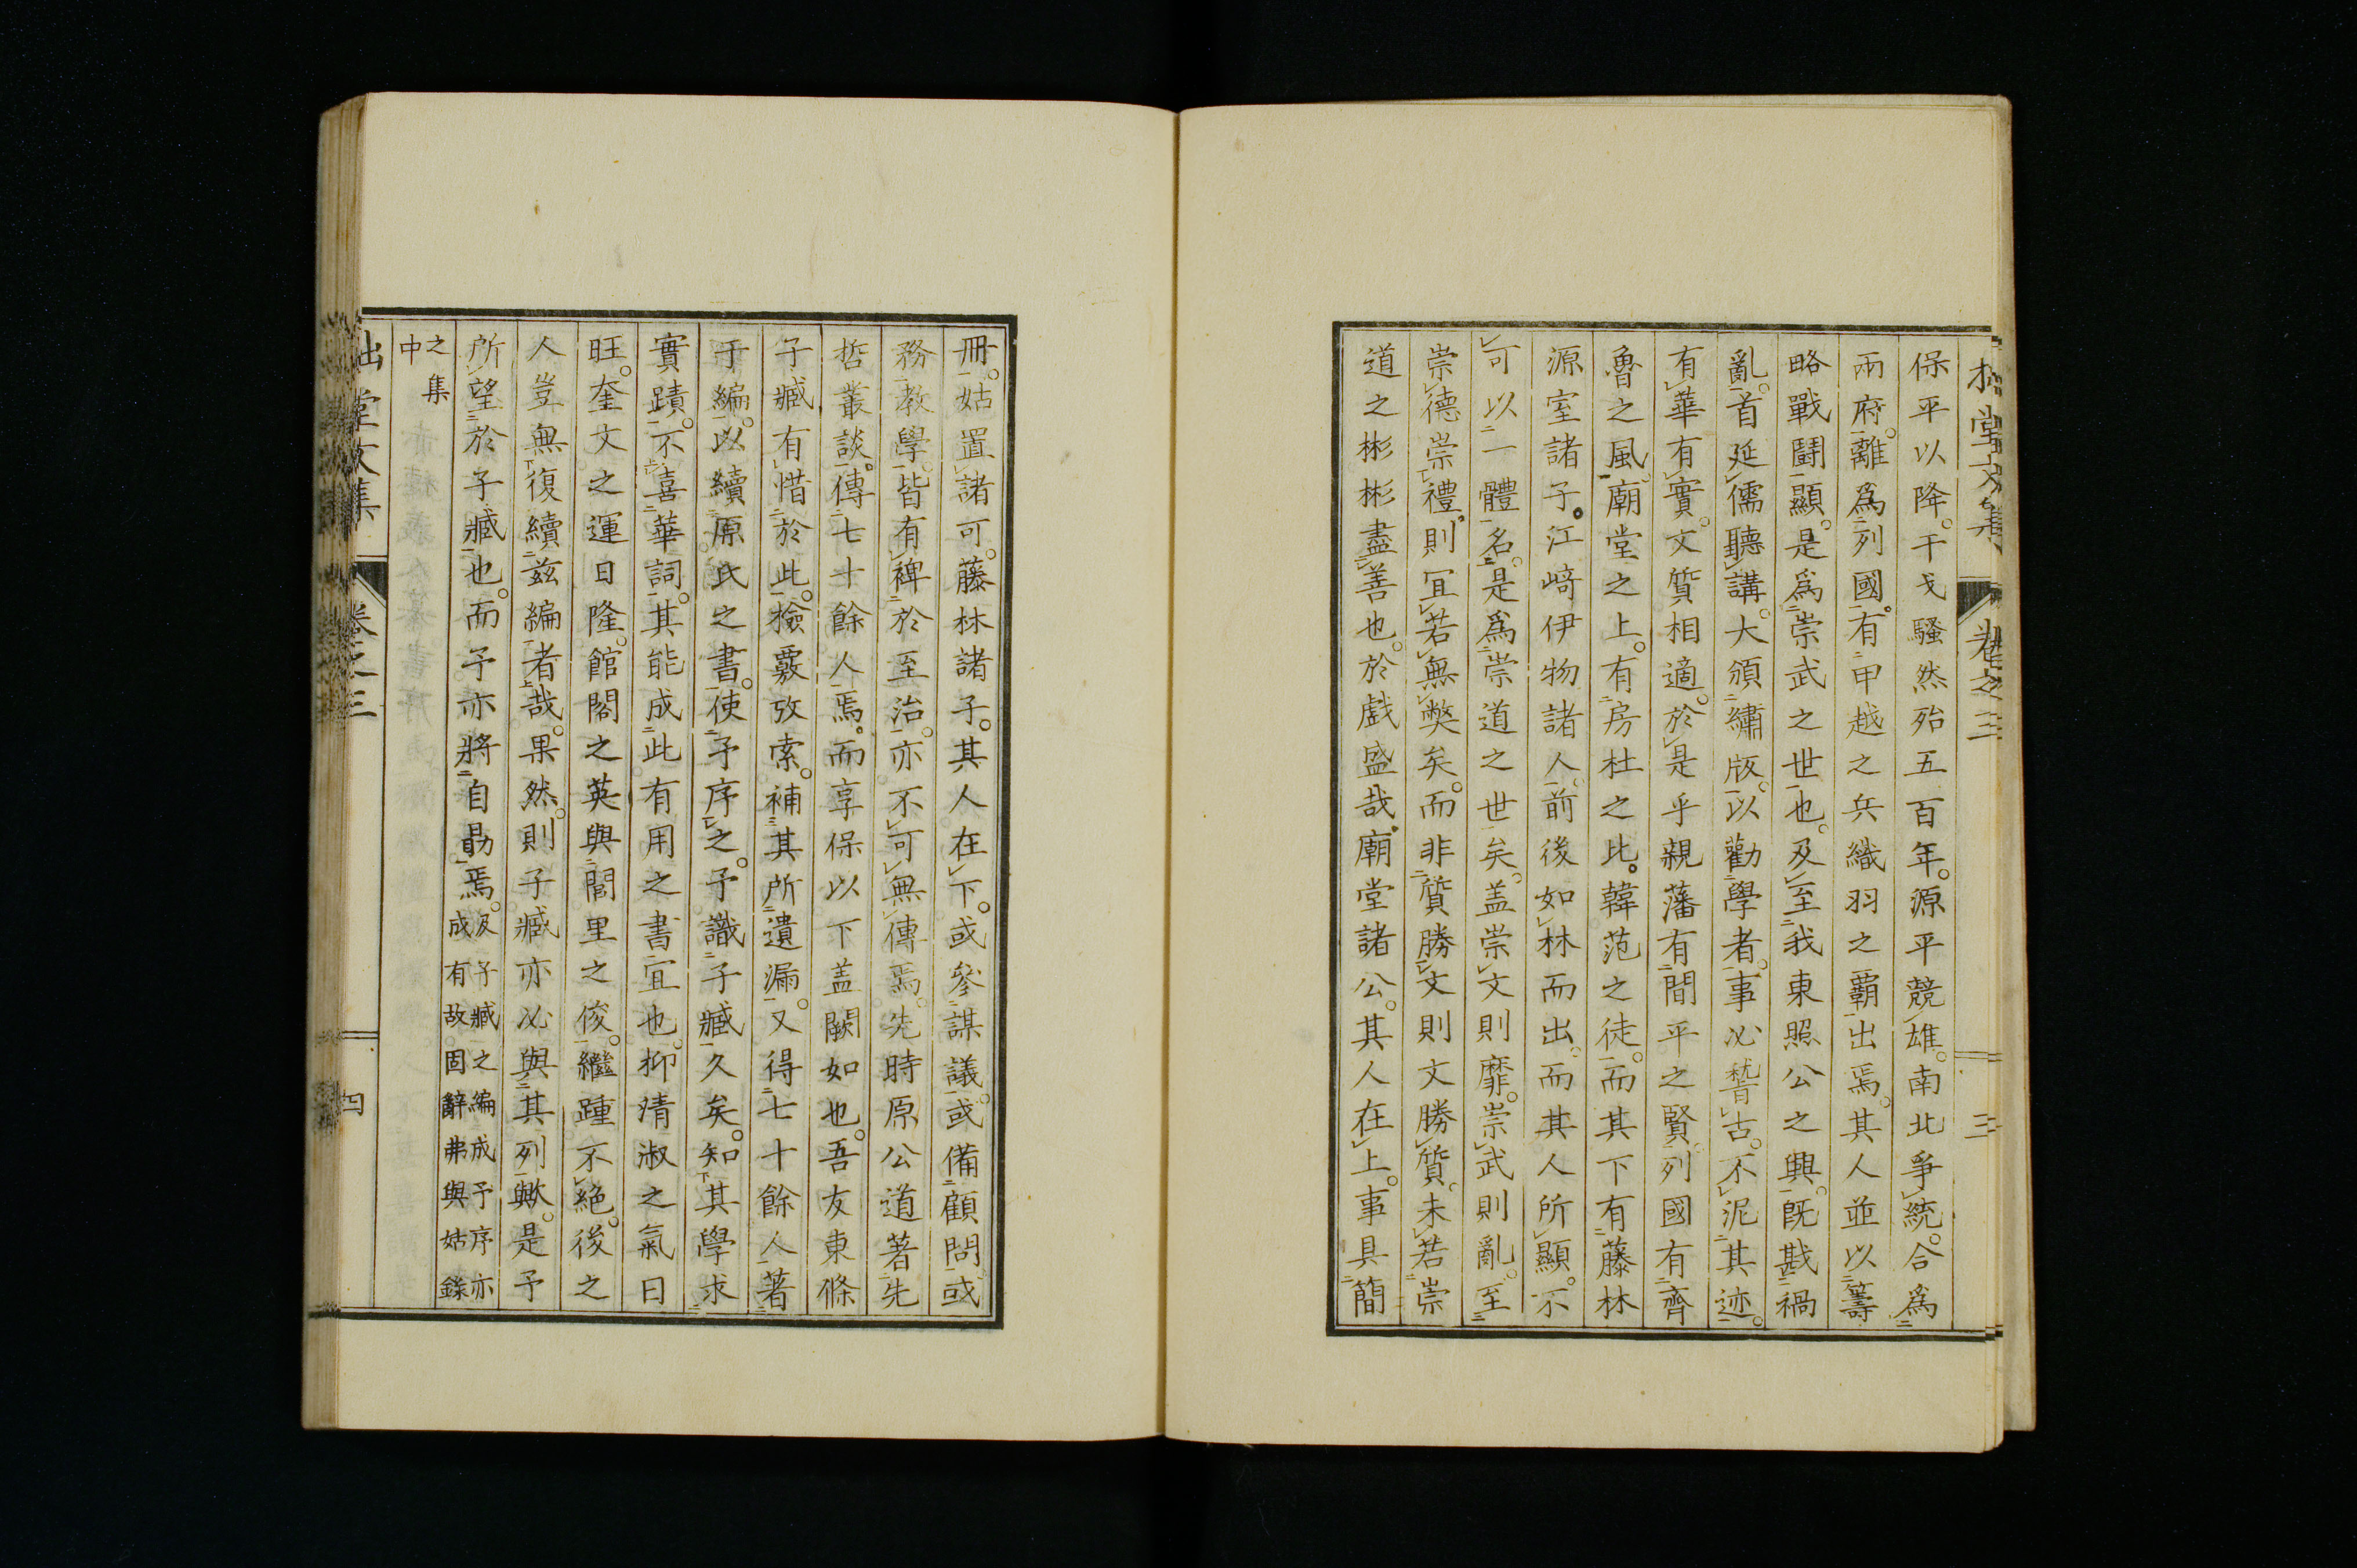 堂文集 卷之三 三
保平以降。干戈騷然殆五百年。源平競雄。南北爭統。合爲
兩府。離爲列國。有甲越之兵織羽之覇出焉。其人並以籌
略戰鬪顯。是爲崇武之世也。及至我東照公之興。既戡禍
亂。首延儒聽講。大頒繡版。以勸學者。事必嵆古。不泥其迹。
有華有實。文質相適。於是乎親藩有間平之賢。列國有齊
魯之風。廟堂之上。有房杜之比。韓范之徒。而其下有藤林
源室諸子。江﨑伊物諸人。前後如林而出。而其人所顯。不
可以一體名。是爲崇道之世矣。盖崇文則靡。崇武則亂。至
崇德崇禮。則宜若無弊矣。而非質勝文則文勝質。未若崇
道之彬彬盡善也。於戲盛哉。廟堂諸公。其人在上。事具簡
冊。姑置諸可。藤林諸子。其人在下。或參謀議。或備顧問。或
務教學。皆有裨於至治。亦不可無傳焉。先時原公道著先
哲叢談。傳七十餘人焉。而享保以下盖闕如也。吾友東條
子臧有惜於此。撿覈攷索。補其所遺漏。又得七十餘人。著
于編。以續原氏之書。使予序之。予識子臧久矣。知其學求
實蹟。不喜華詞。其能成此有用之書宜也。抑清淑之氣日
旺。奎文之運日隆。館閣之英與閭里之俊。繼踵不絕。後之
人豈無復續茲編者哉。果然。則子臧亦必與其列歟。是予
所望於子臧也。而予亦將自勗焉。及子臧之編成予序亦
成有故固辭弗與姑錄
之集
中
堂文集 卷之三 四